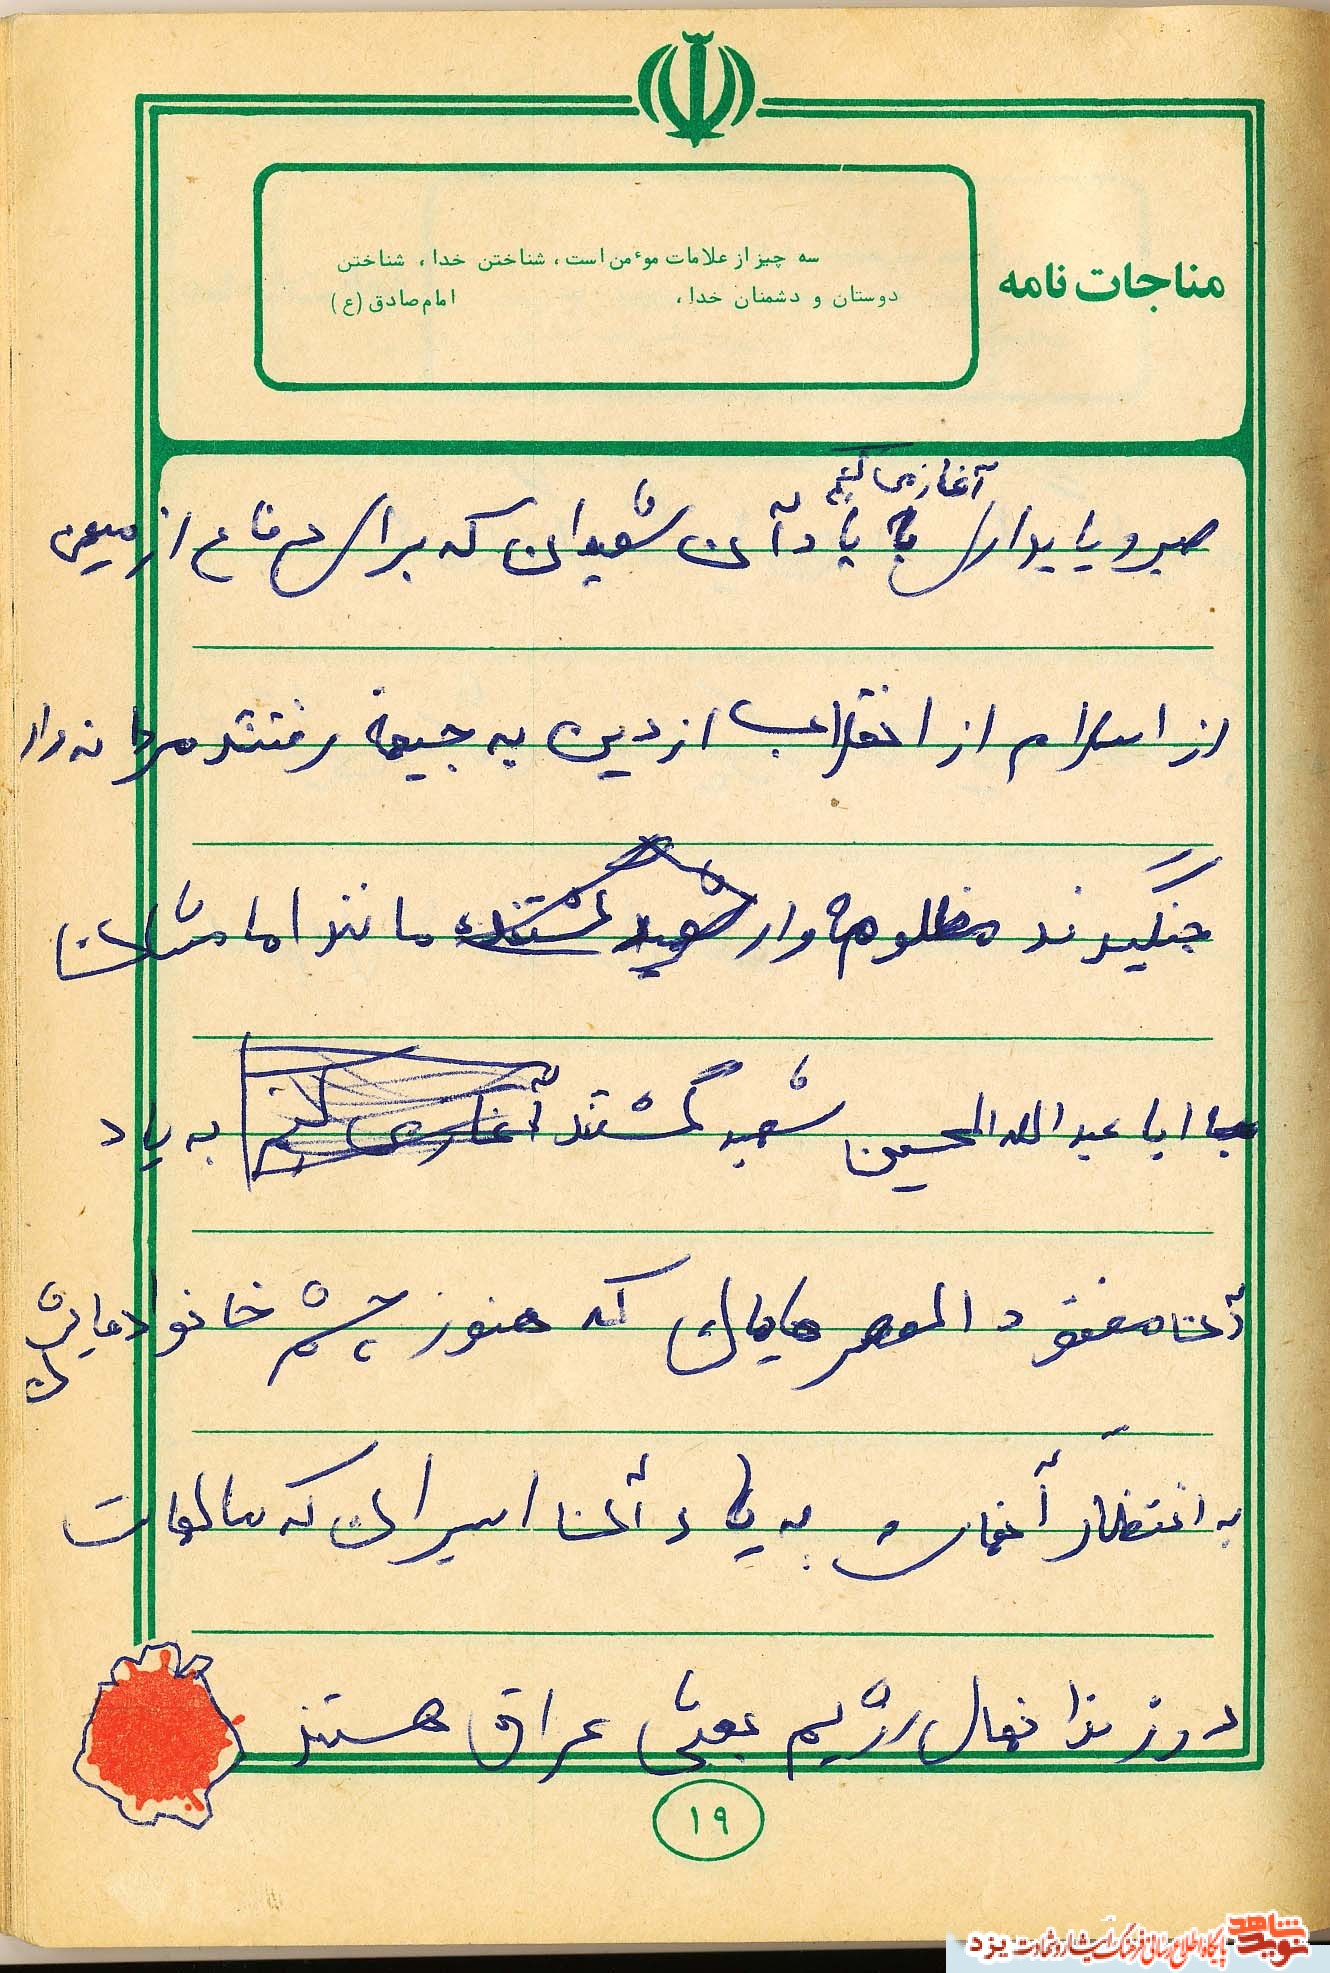 مناجات نامه
سه چیز از علامات موٴمن است، شناختن خدا، شناختن
دوستان و دشمنان خدا، امام صادق (ع)
آغاز می کنم
صبر و پایداری با یاد آن شهیدان که برای دفاع از میهن
از اسلام از انقلاب از دین به جبهه رفتند مردانه وار
جنگیدند مظلوم وار شهید گشتند مانند امامشان
ابا عبدالله الحسین شهید گشتند آغاز می کنم به یاد
آن مفقود الاثرهایی که هنوز چشم خانواده‌هایشان
به انتظار آنهاست به یاد آن اسیرانی که سالهاست
در زندانهای رژیم بعثی عراق هستند
۱۹
نوید شاهد
پایگاه اطلاع رسانی فرهنگ ایثار و شهادت یزد